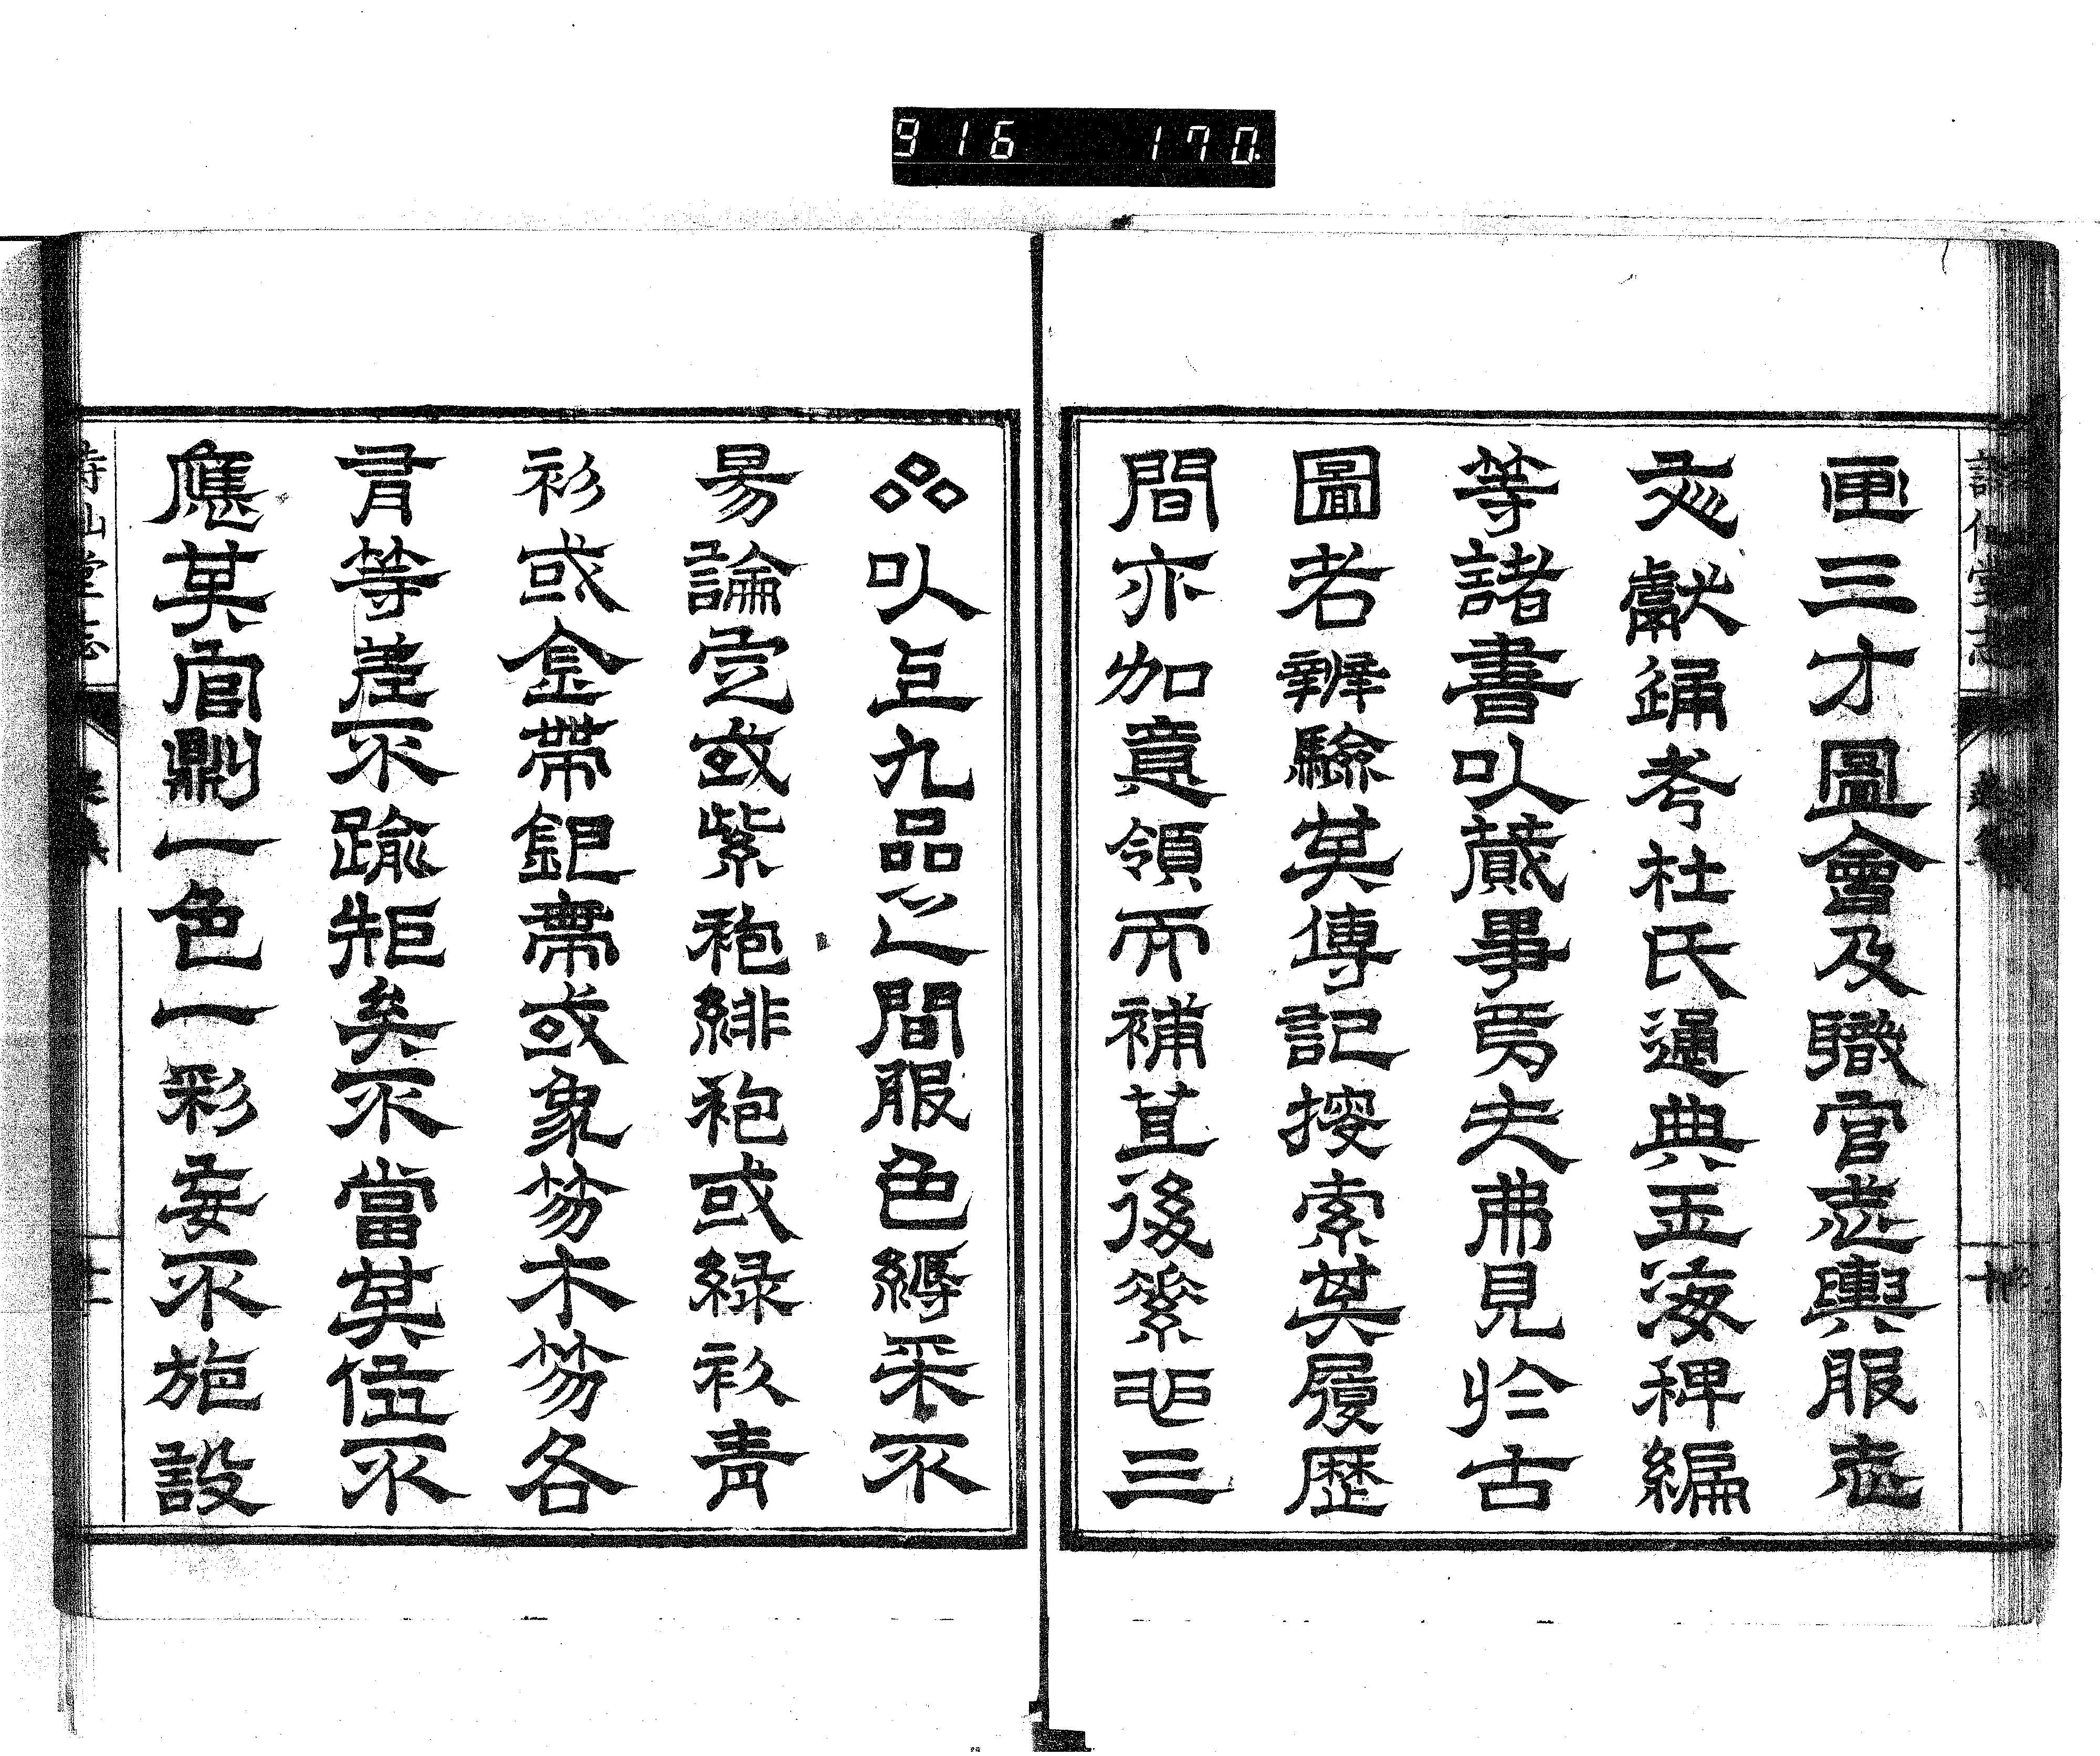 916 170
画三才圖會及職官志輿服志
文獻通考杜氏通典玉海稗編
等諸書以蕆事焉夫弗見於古
圖者辨驗其傳記按索其履歷
間亦加意領而補苴後素也三
以上九品之間服色縟采不
易論定或紫袍緋袍或綠衫青
衫或金帶銀帶或象笏木笏各
有等差不踰矩矣不當其位不
應其官則一色一彩妄不施設